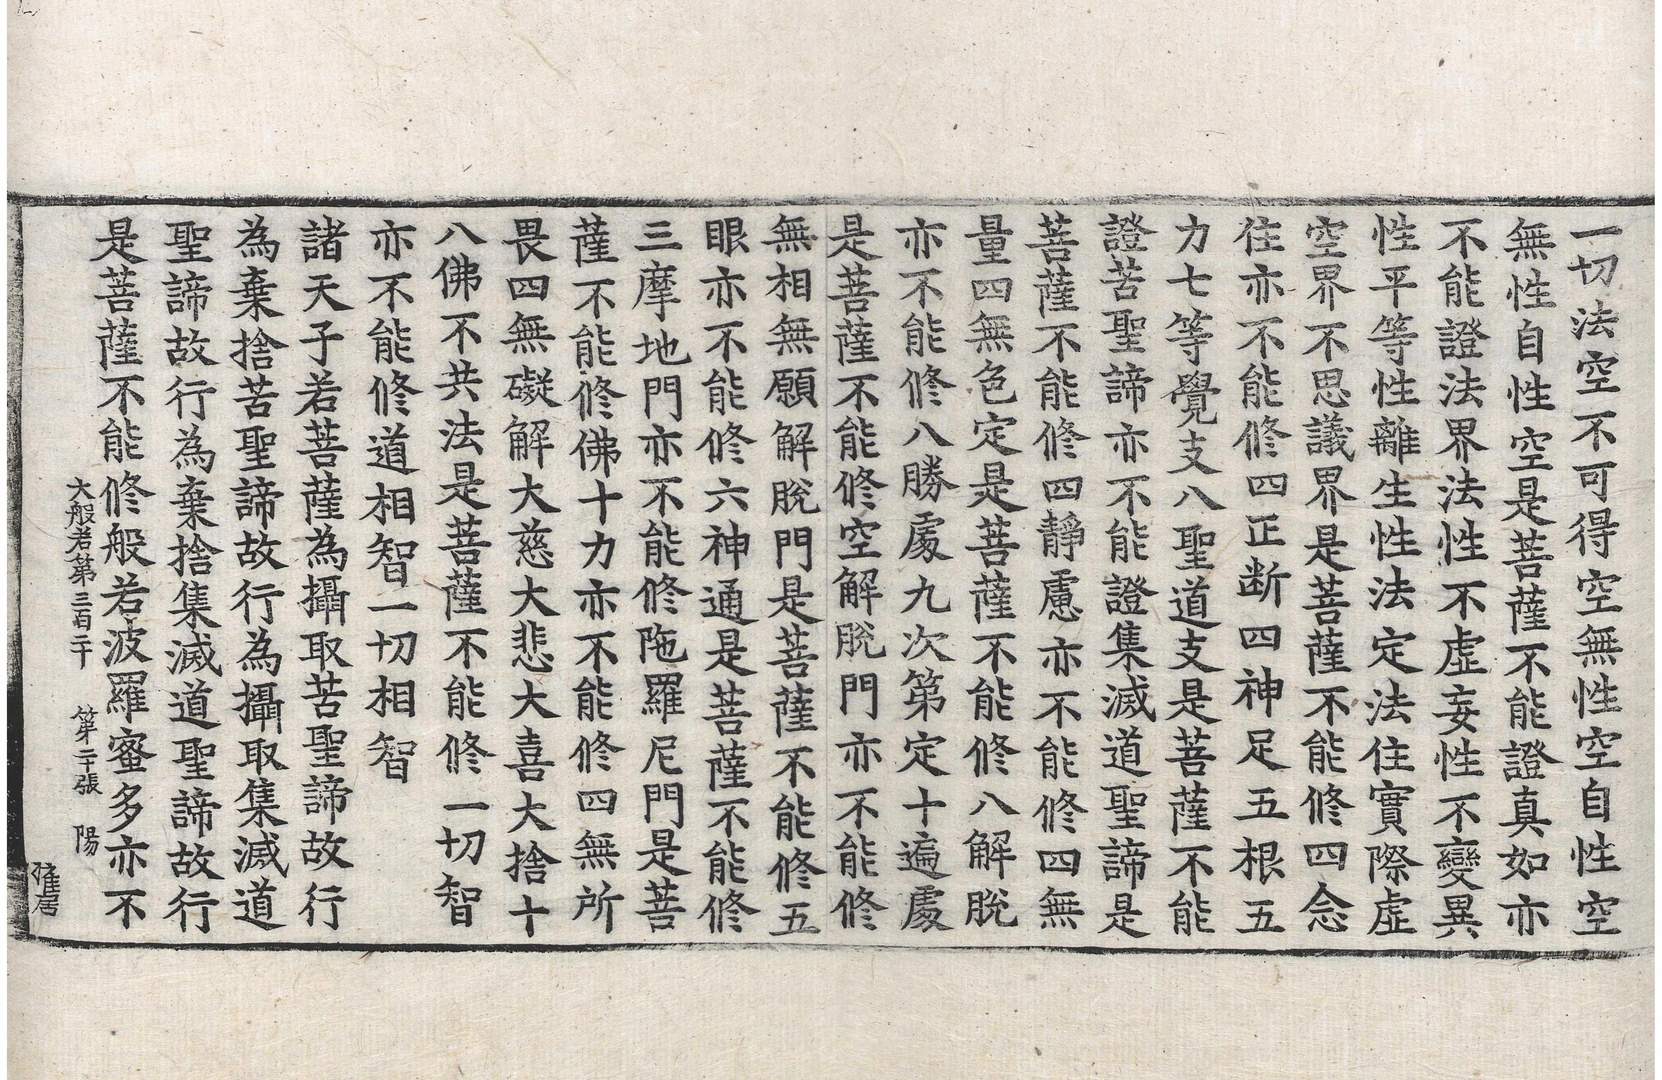 一切法空不可得空無性空自性空
無性自性空是菩薩不能證真如亦
不能證法界法性不虛妄性不變異
性平等性離生性法定法住實際虛
空界不思議界是菩薩不能修四念
住亦不能修四正断四神足五根五
力七等覺支八聖道支是菩薩不能
證苦聖諦亦不能證集滅道聖諦是
菩薩不能修四靜慮亦不能修四無
量四無色定是菩薩不能修八解脫
亦不能修八勝處九次第定十遍處
是菩薩不能修空解脫門亦不能修
無相無願解脫門是菩薩不能修五
眼亦不能修六神通是菩薩不能修
三摩地門亦不能修陁羅尼門是菩
薩不能修佛十力亦不能修四無所
畏四無礙解大慈大悲大喜大捨十
八佛不共法是菩薩不能修一切智
亦不能修道相智一切相智
諸天子若菩薩為攝取苦聖諦故行
為棄捨苦聖諦故行為攝取集滅道
聖諦故行為棄捨集滅道聖諦故行
是菩薩不能修般若波羅蜜多亦不
大般若第三百二十 第二十張 陽